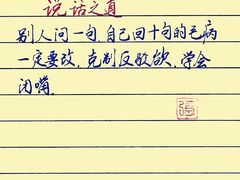 说话之道
别人问一句,自己回十句的毛病
一定要改,克制反驳欲,学会
闭嘴。